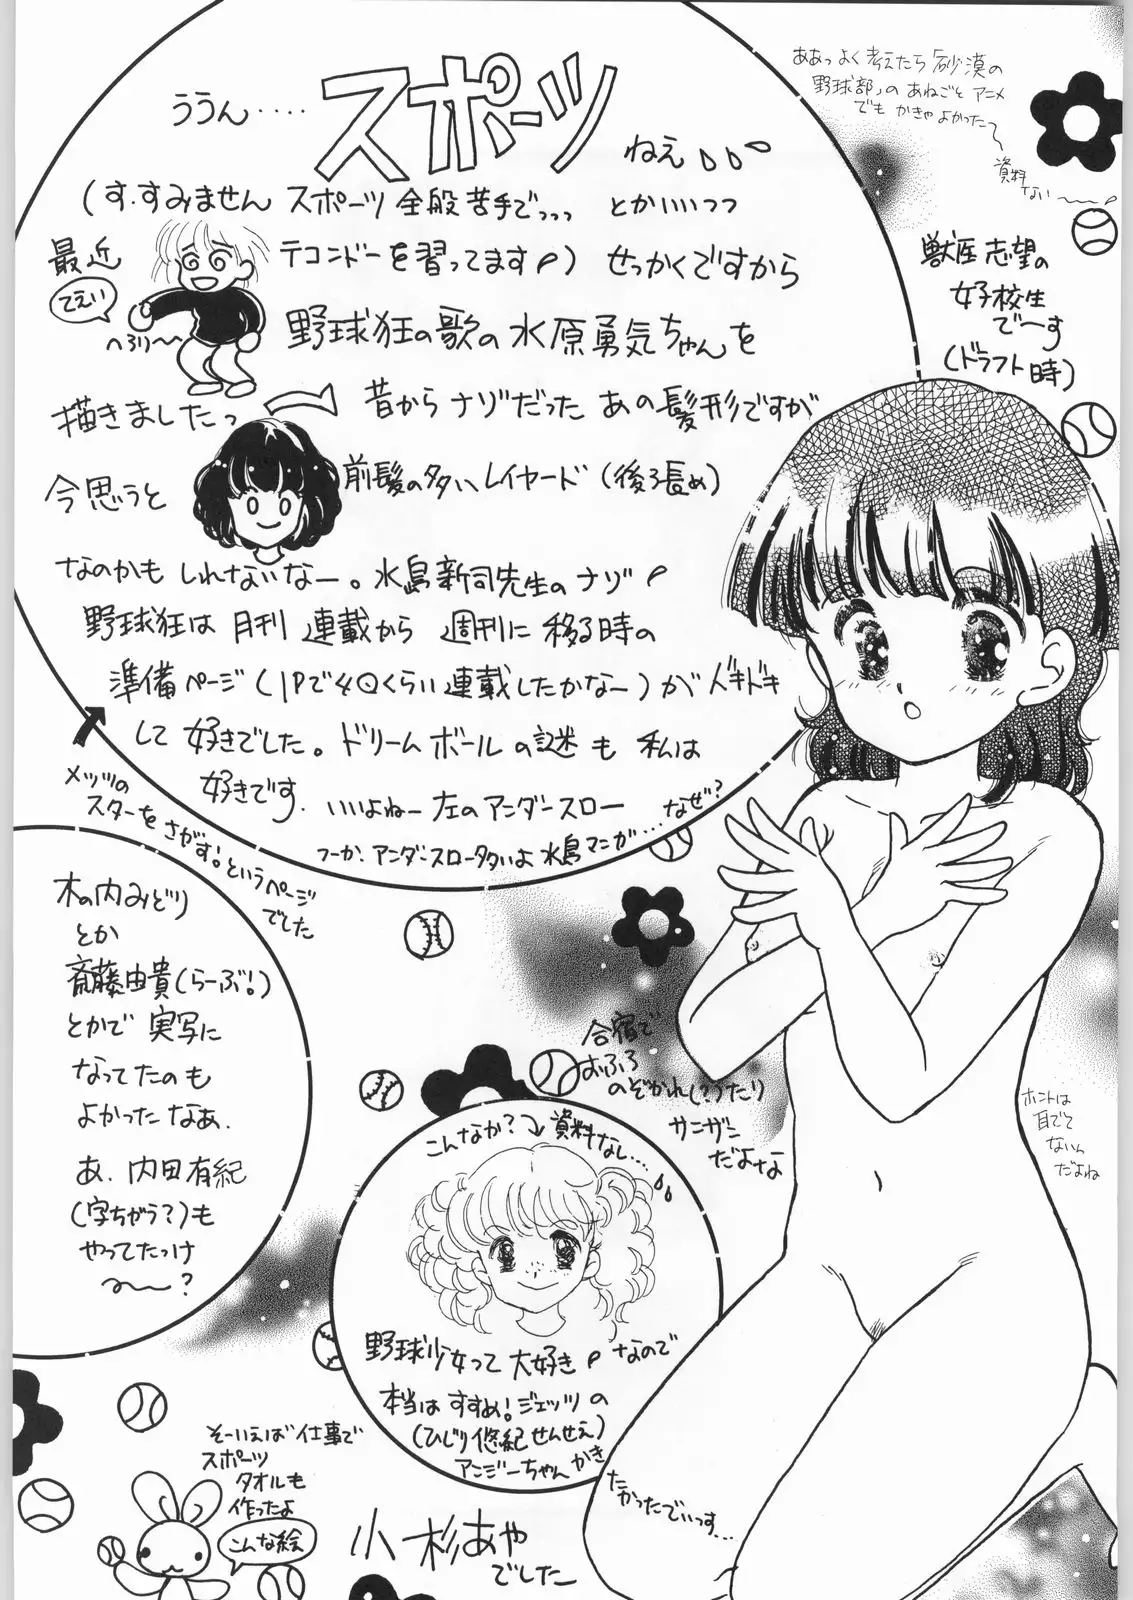 ううん‥‥スポーツねえ
(す、すみません スポーツ全般苦手でっっっ とかいいつつ
最近
テコンドーを習ってます)せっかくですから
てえい
へろり〜〜
野球狂の歌の水原勇気ちゃんを
描きましたっ
昔からナゾだったあの髪形ですが
今思うと
前髪の多いレイヤード(後ろ長め)
なのかもしれないなー。水島新司先生のナゾ
野球狂は月刊連載から週刊に移る時の
準備ページ(1Pで4Qくらい連載したかなー)がドキドキ
して好きでした。ドリームボールの謎も私は
好きです。いいよねー左のアンダースロー
つーか、アンダースロー多いよ水島マンガ…なぜ?
メッツの
スターをさがす!というページ
でした
ああっよく考えたら砂漠の
野球部のあねごとアニメ
でもかきゃよかった〜
資料
ない〜〜
獣医志望の
女子校生
で〜す
(ドラフト時)
木の内みどり
とか
斎藤由貴(らーぶ!)
とかで実写に
なってたのも
よかったなあ.
あ、内田有紀
(字ちがう?)も
やってたっけ
〜〜?
合宿で
おふろ
のぞかれ(?)たり
サンザン
だよなよ
ホントは
耳でて
ないん
だよね
こんなか?
資料なし…
野球少女って大好き なので
本当はすすめ!ジェッツの
(ひじり悠紀せんせえ)
アンジーちゃんかき
たかったでぃっす…
そーいえば仕事で
スポーツ
タオルも
作ったよ
こんな絵
小杉あや
でした